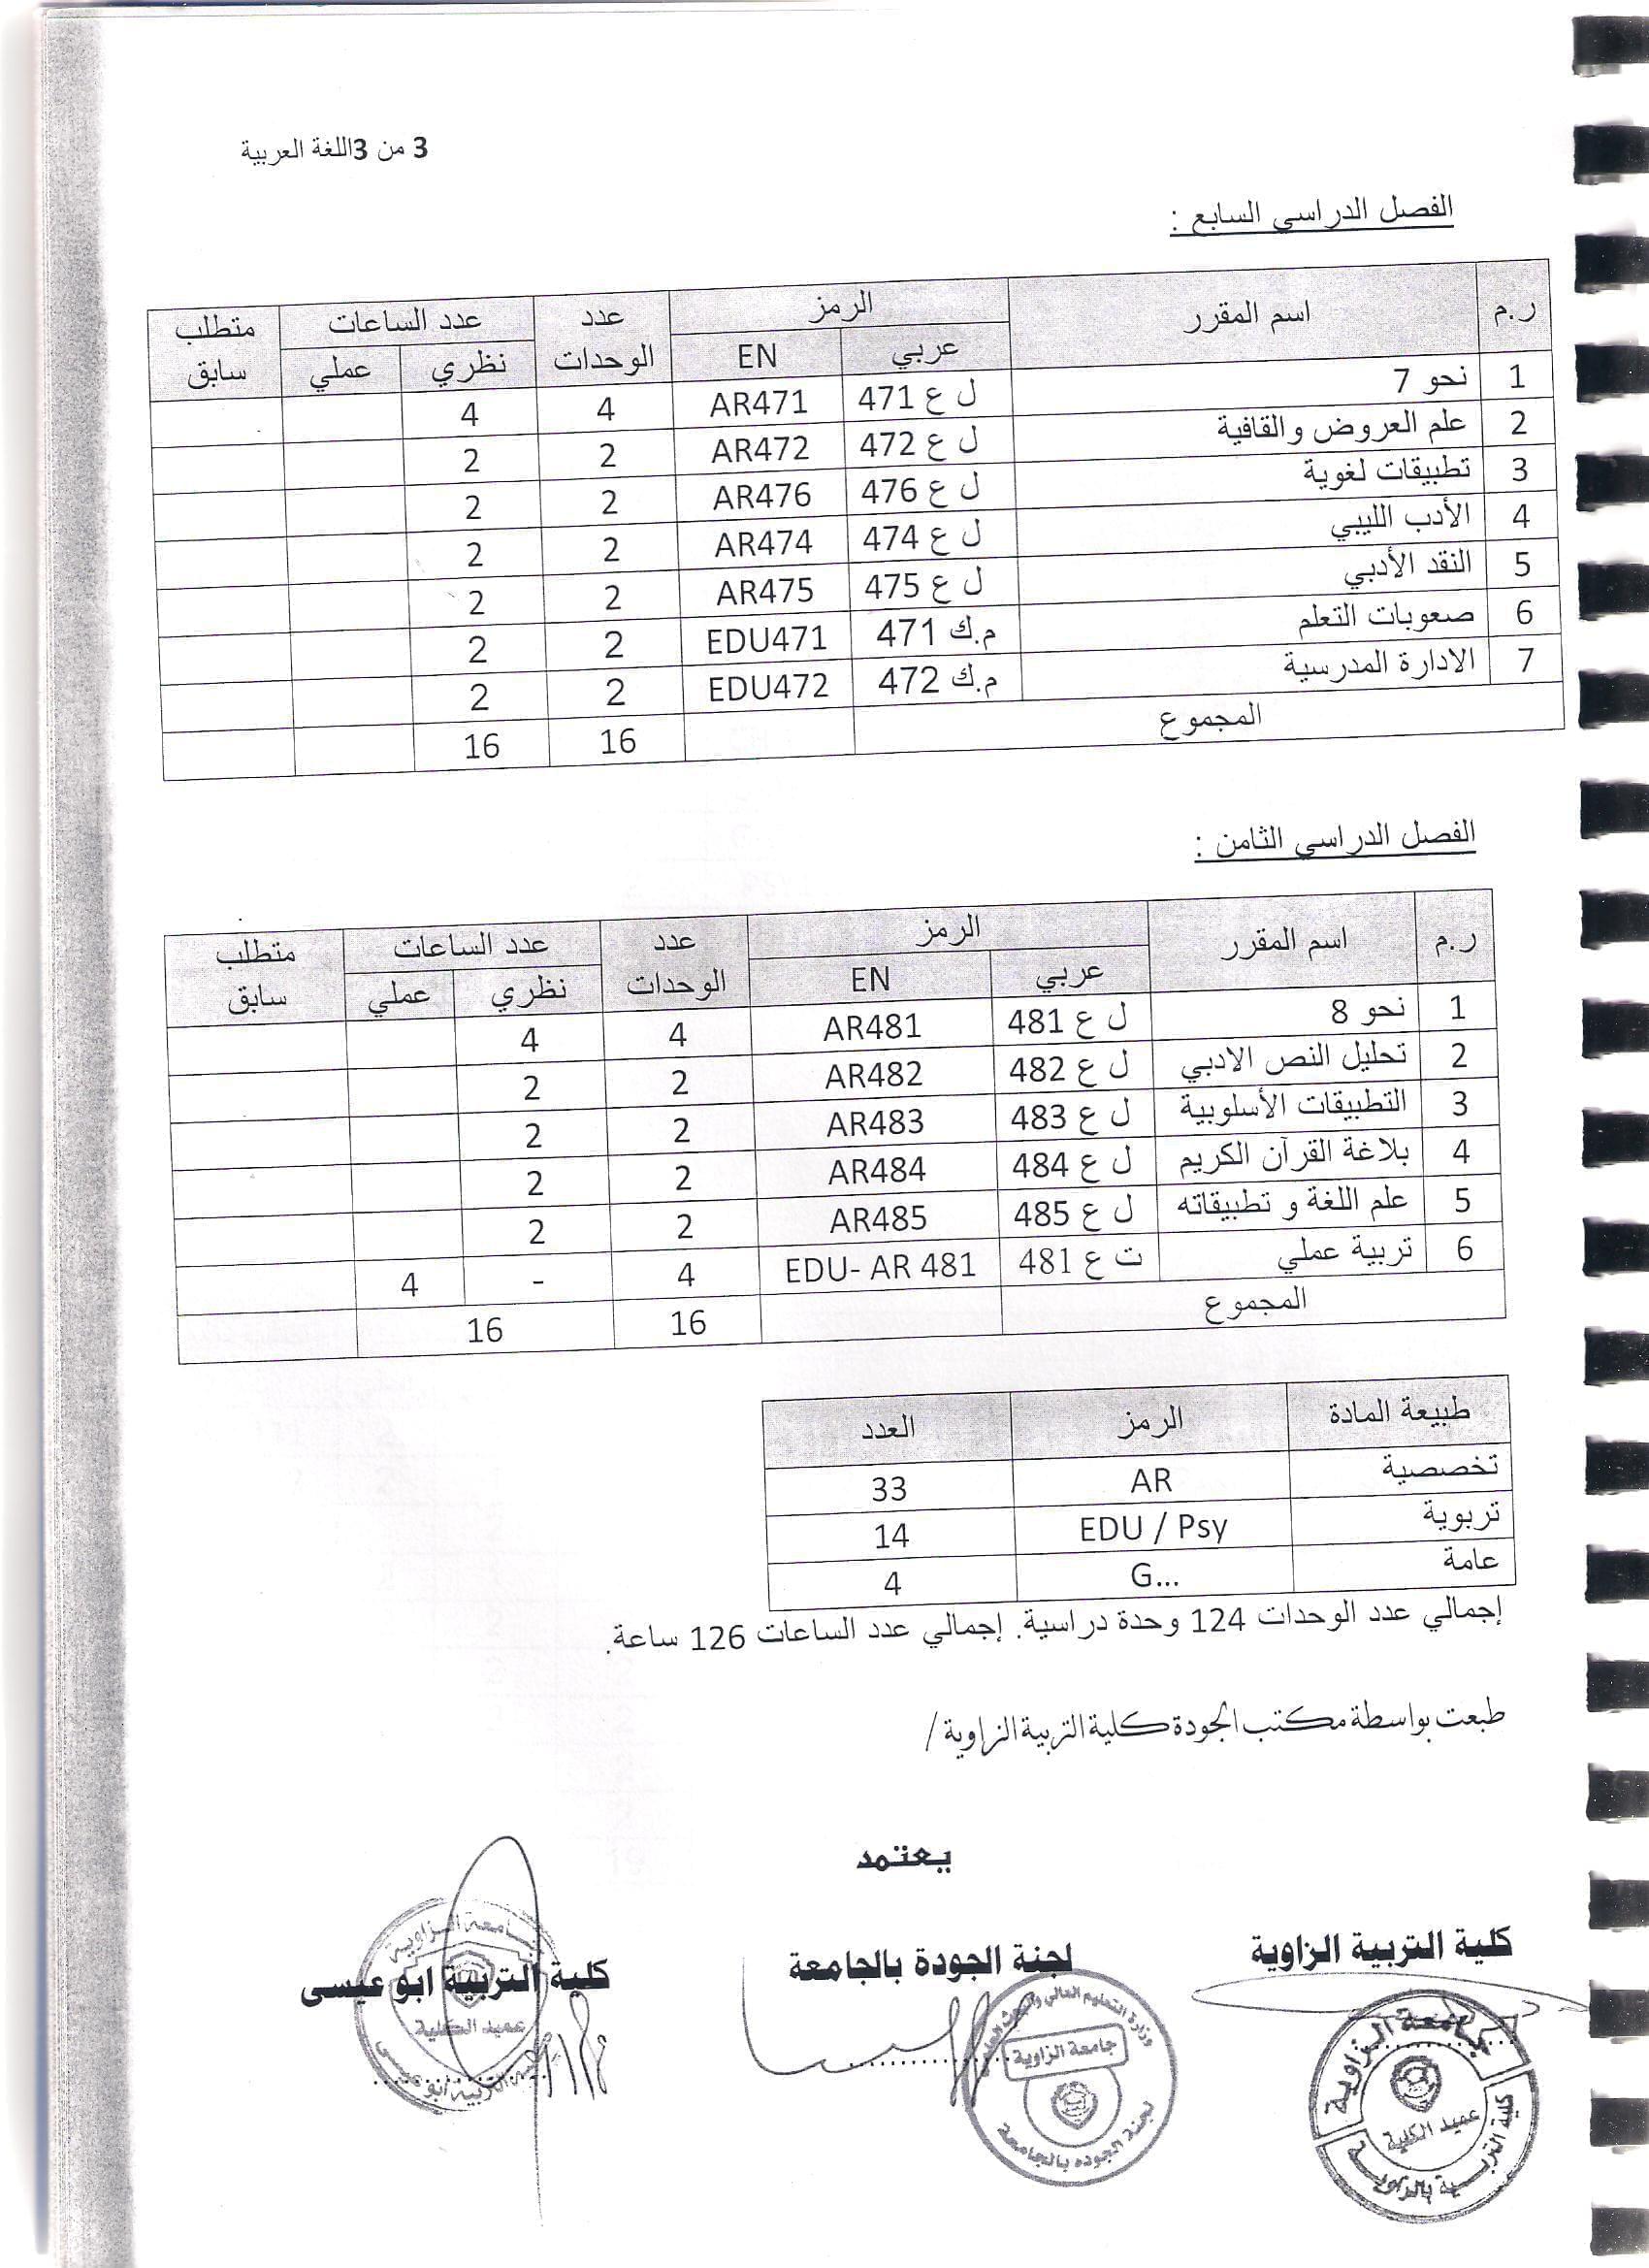 3 من 3اللغة العربية
الفصل الدراسي السابع :
ر.م اسم المقرر الرمز عدد الوحدات عدد الساعات متطلب سابق
عربي EN نظري عملي
1 نحو 7 ل ع 471 AR471 4 4
2 علم العروض والقافية ل ع 472 AR472 2 2
3 تطبيقات لغوية ل ع 476 AR476 2 2
4 الأدب الليبي ل ع 474 AR474 2 2
5 النقد الأدبي ل ع 475 AR475 2 2
6 صعوبات التعلم م.ك 471 EDU471 2 2
7 الادارة المدرسية م.ك 472 EDU472 2 2
المجموع 16 16
الفصل الدراسي الثامن :
ر.م اسم المقرر الرمز عدد الوحدات عدد الساعات متطلب سابق
عربي EN نظري عملي
1 نحو 8 ل ع 481 AR481 4 4
2 تحليل النص الادبي ل ع 482 AR482 2 2
3 التطبيقات الأسلوبية ل ع 483 AR483 2 2
4 بلاغة القرآن الكريم ل ع 484 AR484 2 2
5 علم اللغة و تطبيقاته ل ع 485 AR485 2 2
6 تربية عملي ت ع 481 EDU- AR 481 4 - 4
المجموع 16 16
طبيعة المادة الرمز العدد
تخصصية AR 33
تربوية EDU / Psy 14
عامة G... 4
إجمالي عدد الوحدات 124 وحدة دراسية. إجمالي عدد الساعات 126 ساعة.
طبعت بواسطة مكتب الجودة كلية التربية الزاوية /
يعتمد
كلية التربية الزاوية لجنة الجودة بالجامعة كلية التربية ابو عيسى
جامعة الزاوية
عميد الكلية
كلية التربية بالزاوية
وزارة التعليم العالي والبحث العلمي
جامعة الزاوية
لجنة الجوده بالجامعة
جامعة الزاوية
عميد الكلية